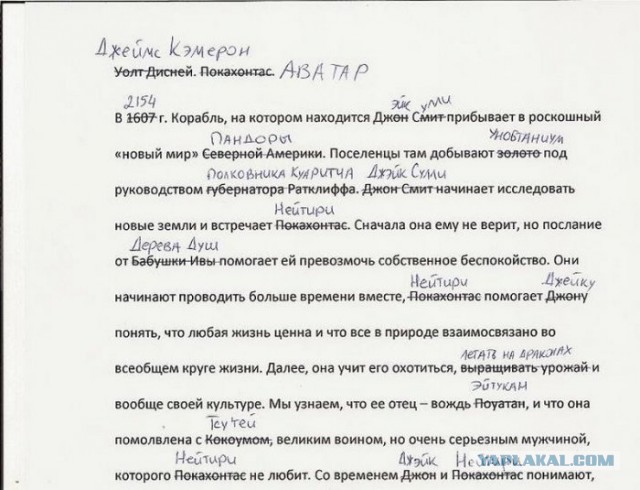 Джеймс Кэмерон
Уолт Дисней. Покахонтас. АВАТАР
2154 эйк улли
В 1607 г. Корабль, на котором находится Джон Смит прибывает в роскошный
ПАНДОРЫ УНОБТАНИУМ
«новый мир» Северной Америки. Поселенцы там добывают золото под
ПОЛКОВНИКА КУАРИТЧА ДЖЭЙК СУЛЛИ
руководством губернатора Ратклиффа. Джон Смит начинает исследовать
НЕЙТИРИ
новые земли и встречает Покахонтас. Сначала она ему не верит, но послание
Дерева Душ
от Бабушки Ивы помогает ей превозмочь собственное беспокойство. Они
Нейтири Джейку
начинают проводить больше времени вместе, Покахонтас помогает Джону
понять, что любая жизнь ценна и что все в природе взаимосвязано во
ЛЕТАТЬ НА ДРАКОНАХ
всеобщем круге жизни. Далее, она учит его охотиться, выращивать урожай и
ЭЙТУКАН
вообще своей культуре. Мы узнаем, что ее отец – вождь Поуатан, и что она
Тсу'тей
помолвлена с Кокоумом, великим воином, но очень серьезным мужчиной,
Нейтири Джэйк Нейтири
которого Покахонтас не любит. Со временем Джон и Покахонтас понимают,
YAPLAKAL.COM